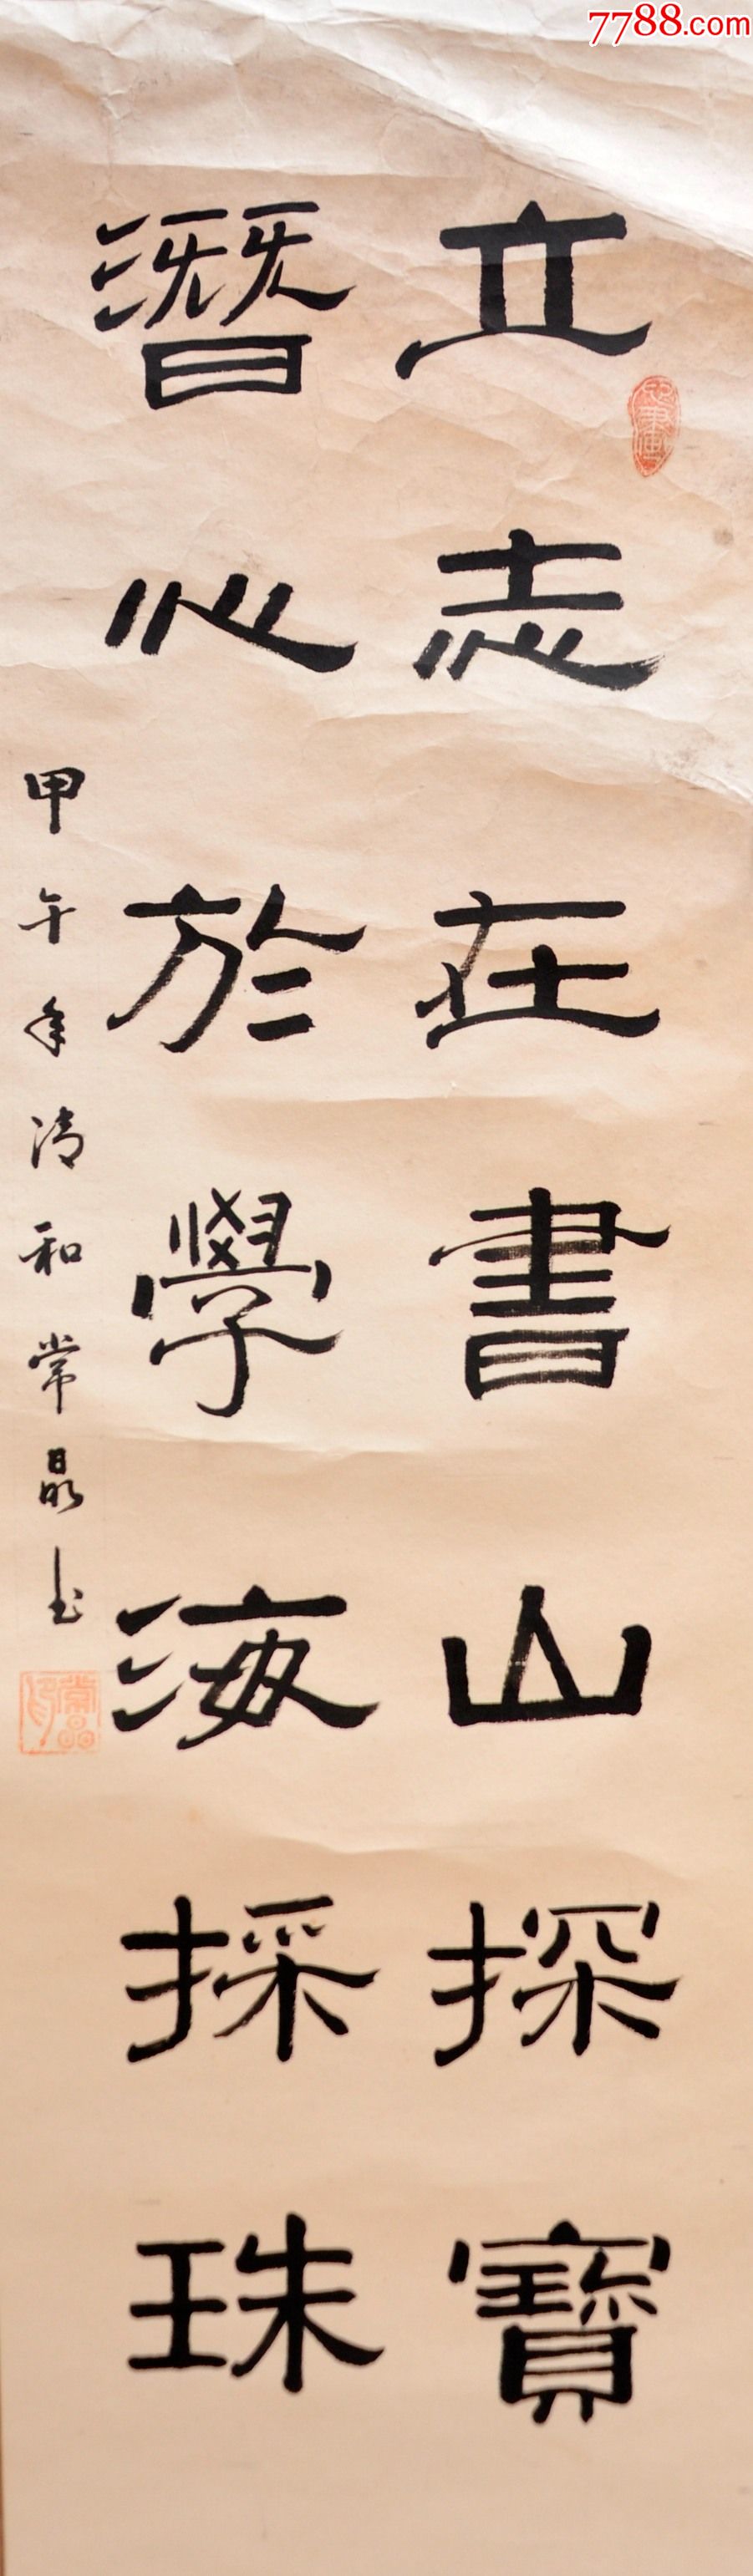 7788.com
立志在書山探寶
潛心於學海採珠
甲午年清和常晶书